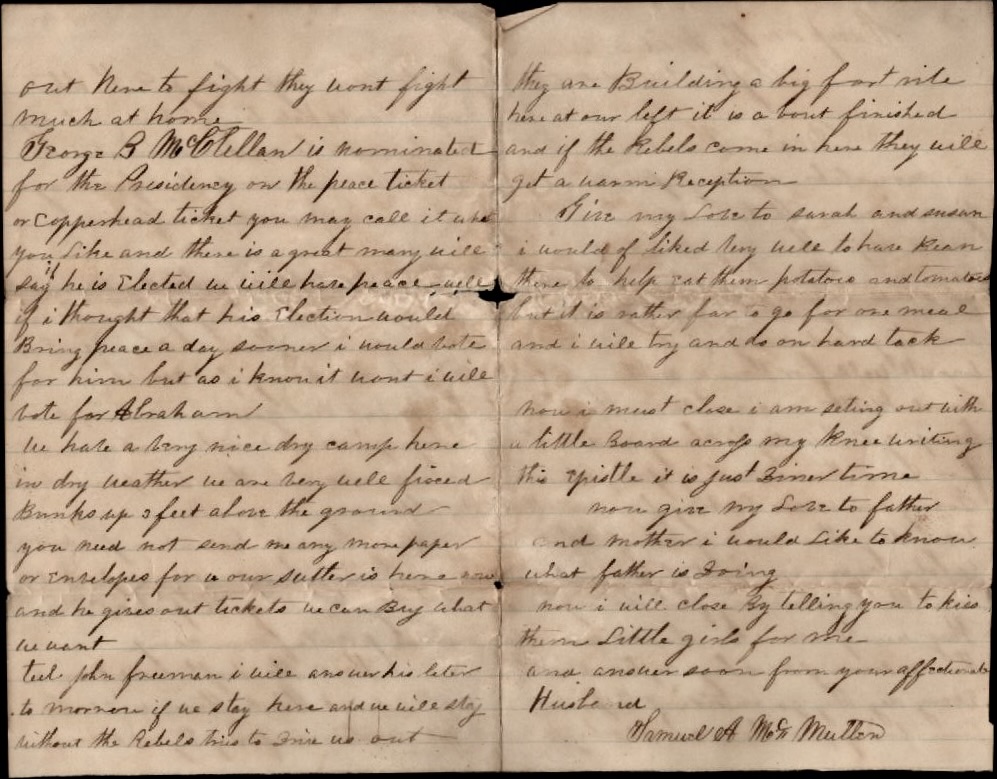 out here to fight they wont fight
much at home
George B McClellan is nominated
for the Presidency on the peace ticket
or Copperhead ticket you may call it what
you Like and there is a great many will
say if he is Elected we will have peace well
if i thought that his Election would
Bring peace a day sooner i would vote
for him but as i know it wont i will
vote for Abraham
we have a very nice dry camp here
in dry weather we are very well fixed
Bunks up 2 feet above the ground
you need not send me any more paper
or Envelopes for us our sutler is here now
and he gives out tickets we can Buy what
we want
tell John freeman i will answer his leter
to morrow if we stay here and we will stay
without the Rebels tries to Drive us out
they are Building a big fort rite
here at our left it is a bout finished
and if the Rebels come in here they will
get a warm Reception
Give my Love to sarah and susan
i would of liked very well to have Bean
there to help Eat them potatoes and tomatoes
but it is rather far to go for one meal
and i will try and do on hard tack
now i must close i am seting out with
a little Board across my knee writing
this Epistle it is just Diner time
now give my Love to father
and mother i would Like to know
what father is Doing
now i will close By telling you to kiss
them Little girls for me
and answer soon from your affectionate
Husband
Samuel A McMullen